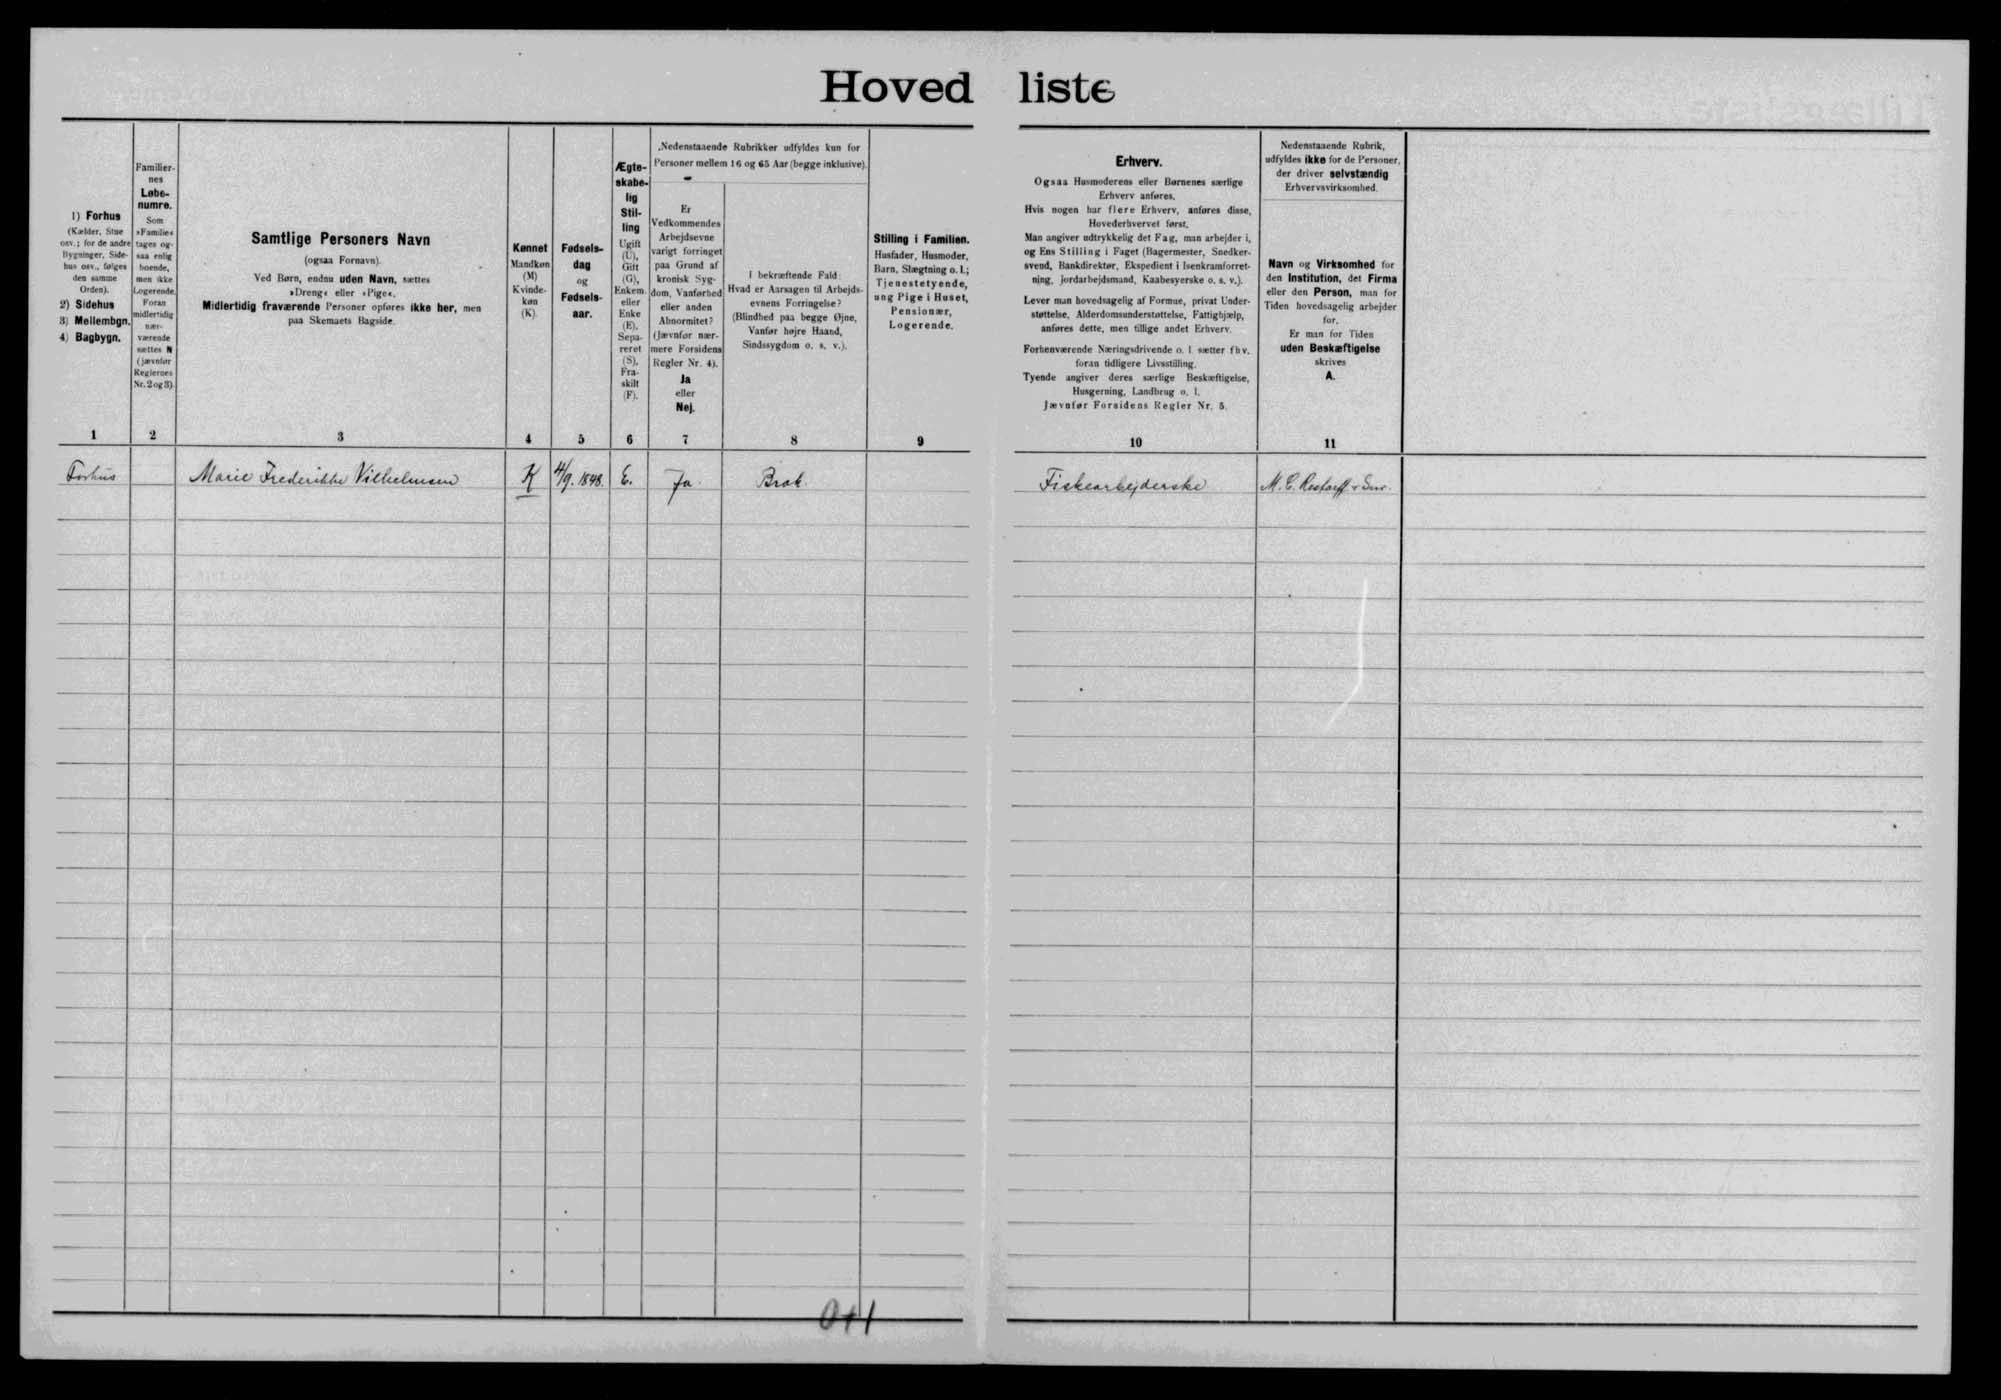 Hovedliste
1) Forhus
(Kælder, Stue
osv.; for de andre
Bygninger, Side-
hus osv., følges
den samme
Orden).
2) Sidehus
3) Mellembgn.
4) Bagbygn.
1
Familier-
nes
Løbe-
numre.
Som
»Familie«
tages og-
saa enlig
boende,
men ikke
Logerende.
Foran
midlertidig
nær-
værende
sættes N
(jævnfør
Reglernes
Nr. 2 og 3).
2
Samtlige Personers Navn
(ogsaa Fornavn).
Ved Børn, endnu uden Navn, sættes
»Dreng« eller »Pige«.
Midlertidig fraværende Personer opføres ikke her, men
paa Skemaets Bagside.
3
Kønnet
Mandkøn
(M)
Kvinde-
køn
(K).
4
Fødsels-
dag
og
Fødsels-
aar.
5
Ægte-
skabe-
lig
Stil-
ling
Ugift
(U),
Gift
(G),
Enkem.
eller
Enke
(E),
Sepa-
reret
(S),
Fra-
skilt
(F).
6
Nedenstaaende Rubrikker udfyldes kun for
Personer mellem 16 og 65 Aar (begge inklusive).
Er
Vedkommendes
Arbejdsevne
varigt forringet
paa Grund af
kronisk Syg-
dom, Vanførhed
eller anden
Abnormitet?
(Jævnfør nær-
mere Forsidens
Regler Nr. 4).
Ja
eller
Nej.
7
I bekræftende Fald:
Hvad er Aarsagen til Arbejds-
evnens Forringelse?
(Blindhed paa begge Øjne,
Vanfør højre Haand,
Sindssygdom o. s. v.).
8
Stilling i Familien.
Husfader, Husmoder,
Barn, Slægtning o. l.;
Tjenestetyende,
ung Pige i Huset,
Pensionær,
Logerende.
9
Erhverv.
Ogsaa Husmoderens eller Børnenes særlige
Erhverv anføres.
Hvis nogen har flere Erhverv, anføres disse,
Hovederhvervet først.
Man angiver udtrykkelig det Fag, man arbejder i,
og Ens Stilling i Faget (Bagermester, Snedker-
svend, Bankdirektør, Ekspedient i Isenkramforret-
ning, Jordarbejdsmand, Kaabesyerske o. s. v.).
Lever man hovedsagelig af Formue, privat Under-
støttelse, Alderdomsunderstøttelse, Fattighjælp,
anføres dette, men tillige andet Erhverv.
Forhenværende Næringsdrivende o. l. sætter fhv.
foran tidligere Livsstilling.
Tyende angiver deres særlige Beskæftigelse,
Husgerning, Landbrug o. l.
Jævnfør Forsidens Regler Nr. 5.
10
Nedenstaaende Rubrik,
udfyldes ikke for de Personer,
der driver selvstændig
Erhvervsvirksomhed.
Navn og Virksomhed for
den Institution, det Firma
eller den Person, man for
Tiden hovedsagelig arbejder
for.
Er man for Tiden
uden Beskæftigelse
skrives
A.
11
Forhus Marie Frederikke Vilhelmsen K 4/9. 1848. E. Ja. Brok. Fiskearbejderske M. C. Restorff &
0+1